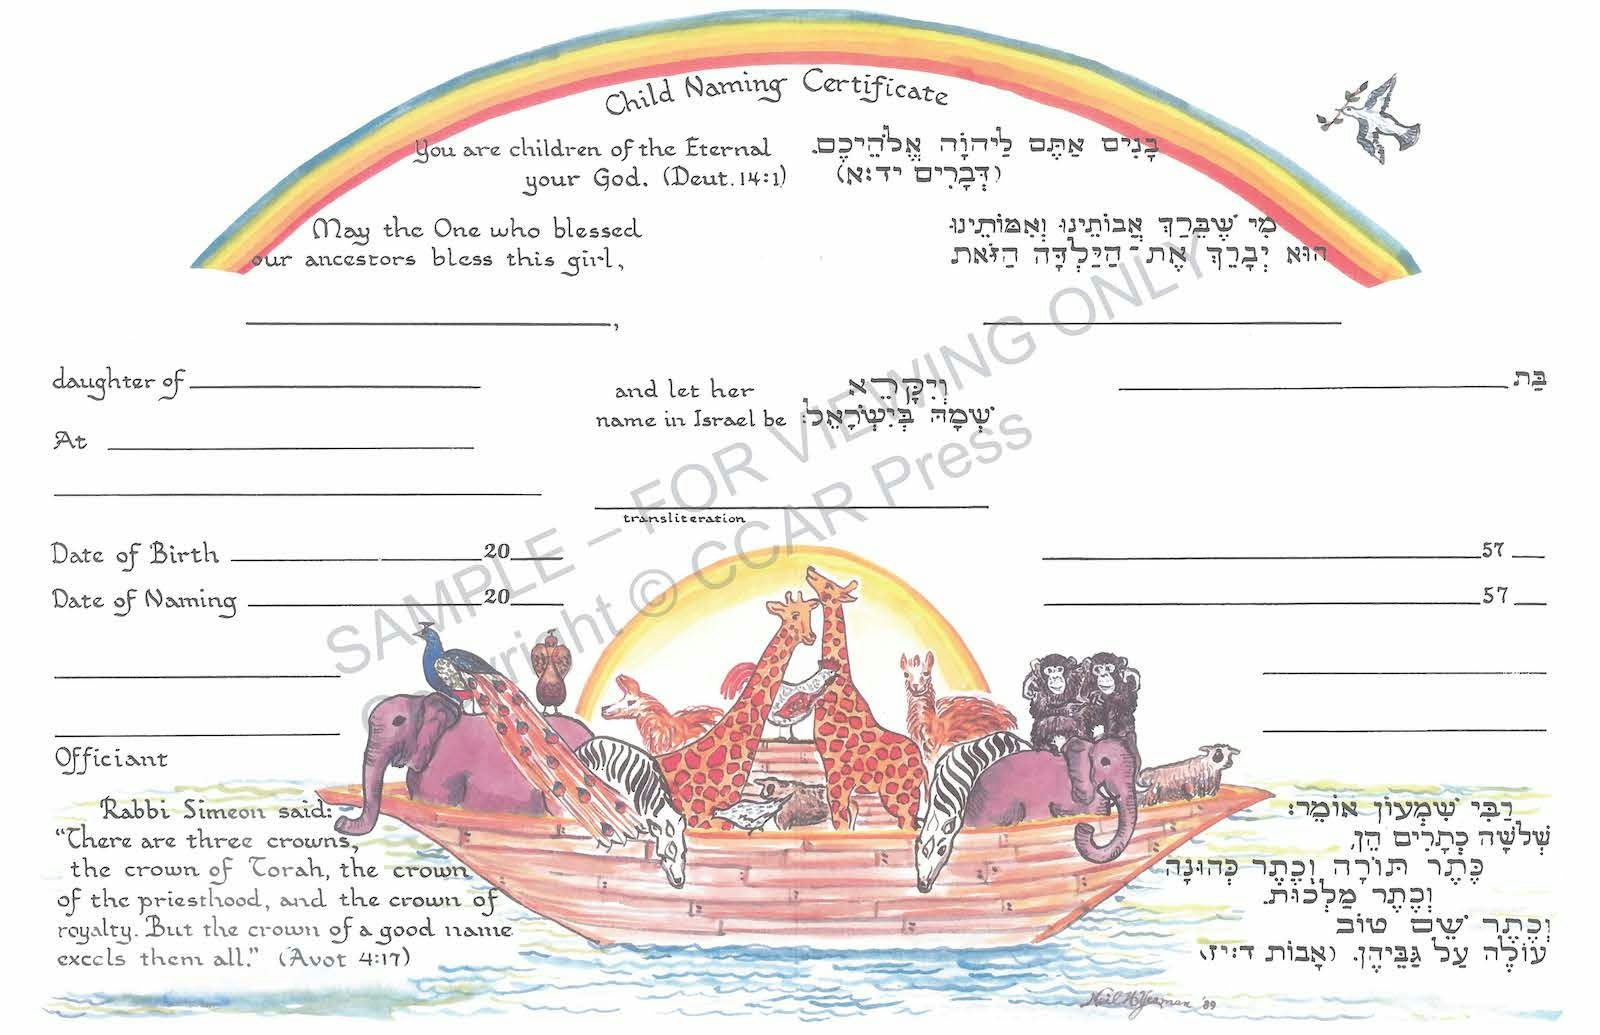 Child Naming Certificate
You are children of the Eternal
your God. (Deut. 14:1)
בָּנִים אַתֶּם לַיהוָֹה אֱלֹהֵיכֶם.
(דְּבָרִים יד:א)
May the One who blessed
our ancestors bless this girl,
מִי שֶׁבֵּרַךְ אֲבוֹתֵינוּ וְאִמּוֹתֵינוּ
הוּא יְבָרֵךְ אֶת־הַיַּלְדָּה הַזֹּאת
,
daughter of
בַּת
and let her
name in Israel be
וְיִקָּרֵא
שְׁמָהּ בְּיִשְׂרָאֵל:
At
transliteration
Date of Birth 20
57
Date of Naming 20
57
Officiant
Rabbi Simeon said:
“There are three crowns,
the crown of Torah, the crown
of the priesthood, and the crown of
royalty. But the crown of a good name
excels them all.” (Avot 4:17)
רַבִּי שִׁמְעוֹן אוֹמֵר:
שְׁלֹשָׁה כְתָרִים הֵן.
כֶּתֶר תּוֹרָה וְכֶתֶר כְּהוּנָּה
וְכֶתֶר מַלְכוּת.
וְכֶתֶר שֵׁם טוֹב
עוֹלֶה עַל גַּבֵּיהֶן. (אָבוֹת ד:יז)
Neil H Yerman '89
SAMPLE – FOR VIEWING ONLY
Copyright © CCAR Press